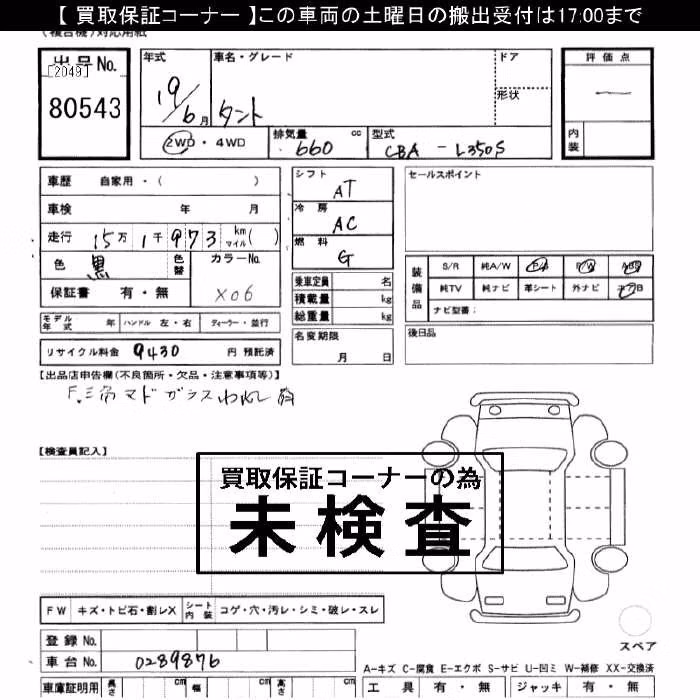 【 買取保証コーナー 】この車両の土曜日の搬出受付は17:00まで
(複合機)対応用紙
出品No.
[2049]
80543
年式
19/6月
車名・グレード
タント
ドア
形状
評価点
内装
2WD ・ 4WD
排気量 660 cc
型式 CBA - L350S
車歴 自家用・( )
車検 年 月
走行 15万1千973 km マイル( )
色 黒 色替 カラーNo. X06
保証書 有・無
シフト AT
冷房 AC
燃料 G
乗車定員 名
積載量 kg
総重量 kg
セールスポイント
装備品
S/R 純A/W P/S P/W ABS
純TV 純ナビ 革シート 外ナビ エアB
ナビ型番:
モデル年式 年 ハンドル 左・右 ディーラー・並行
名変期限 月 日
後日品
リサイクル料金 9430 円 預託済
【出品店申告欄(不良箇所・欠品・注意事項等)】
F.三角マドガラスわれ
【検査員記入】
買取保証コーナーの為
未検査
FW キズ・トビ石・割レX シート内装 コゲ・穴・汚レ・シミ・破レ・スレ
登録No.
車台No. 0289876
スペア
A-キズ C-腐食 E-エクボ S-サビ U-凹ミ W-補修 XX-交換済
車庫証明用 長さ cm 幅 cm 高さ cm
工具 有・無 ジャッキ 有・無